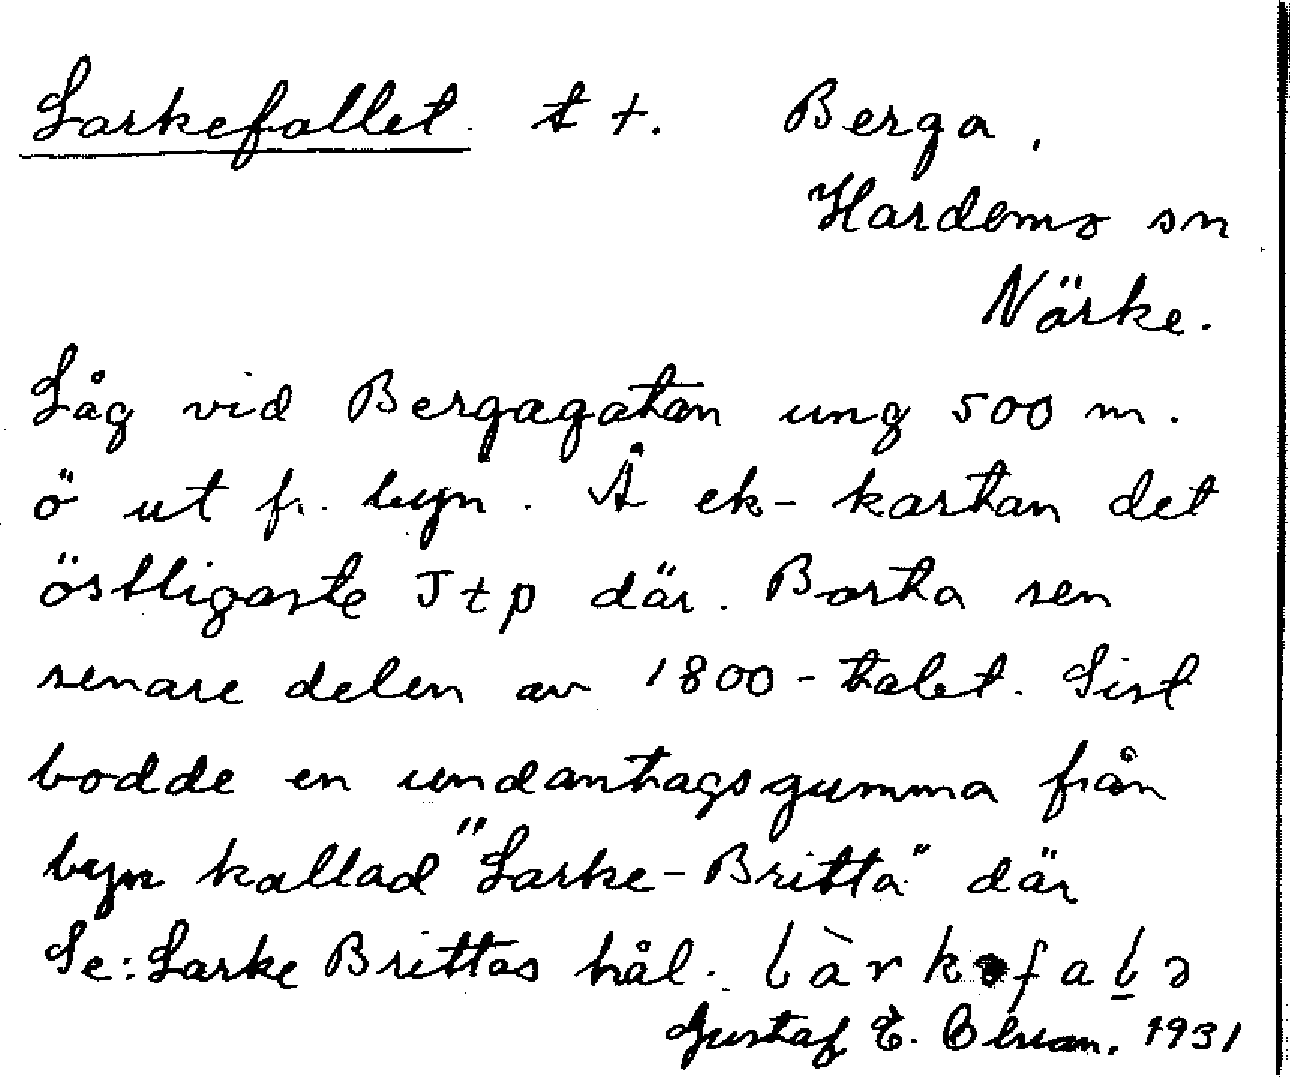 Larkefallet t +. Berga,
Hardemo sn
Närke.
Låg vid Bergagatan ung 500 m.
ö ut fr. byn. Å ek-kartan det
östligaste Jtp där. Borta sen
senare delen av 1800-talet. Sist
bodde en undantagsgumma från
byn kallad "Larke-Britta" där
Se: Larke Brittas hål.
Gustaf E. 1931